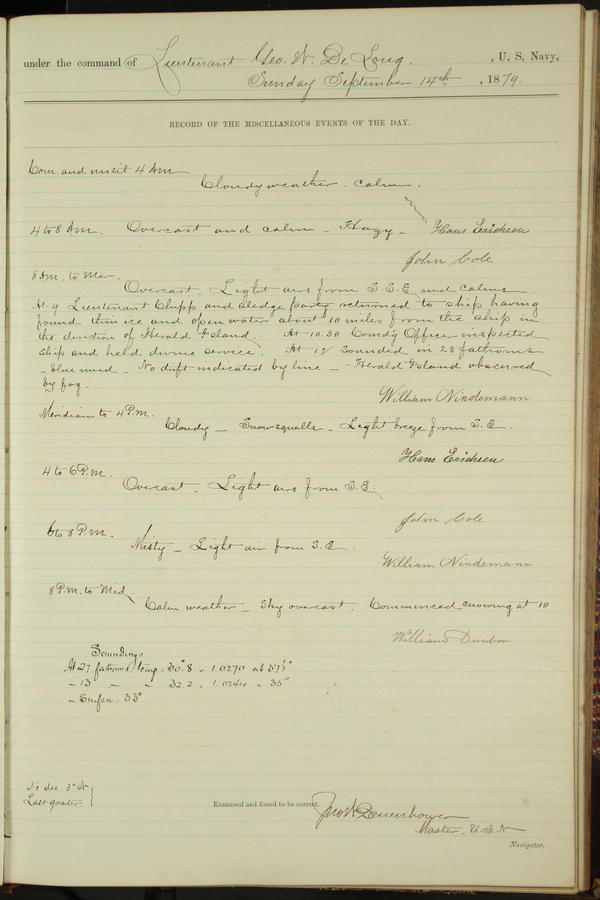 under the command of Lieutenant Geo. W. De Long. , U. S. Navy,
Sunday September 14th , 1879.
RECORD OF THE MISCELLANEOUS EVENTS OF THE DAY.
Com. and until 4 Am
Cloudy weather. calm.
4 to 8 Am. Overcast and calm - Hazy - Hans Erichsen
John Cole
8 Am. to Mer.
Overcast. Light airs from S.S.E and calms.
At 9 Lieutenant Chipp and sledge party returned to ship having
found thin ice and open water about 10 miles from the ship in
the direction of Herald Island. At 10.30 Comd'g Officer inspected
ship and held divine service. At 12 sounded in 28 fathoms
- blue mud - No drift indicated by line - Herald Island obscured
by fog.
William Nindemann
Meridian to 4 P.M.
Cloudy - Snow squalls - Light breeze from S.E.
Hans Erichsen
4 to 6 P.M.
Overcast - Light airs from S.E.
John Cole
6 to 8 P.M.
Misty - Light air from S.E.
William Nindemann
8 P.M. to Mid
Calm weather - Sky overcast. Commenced snowing at 10
William Dunbar
Soundings
At 27 fathoms temp. 30°8 - 1.0270 at 37½°
- 13 - - 32.2 - 1.0240 - 35°
- Surface. 33°
No dec. 3° W
Last quarter.
Examined and found to be correct.
Jno W Danenhower
Master. U.S.N.
Navigator.